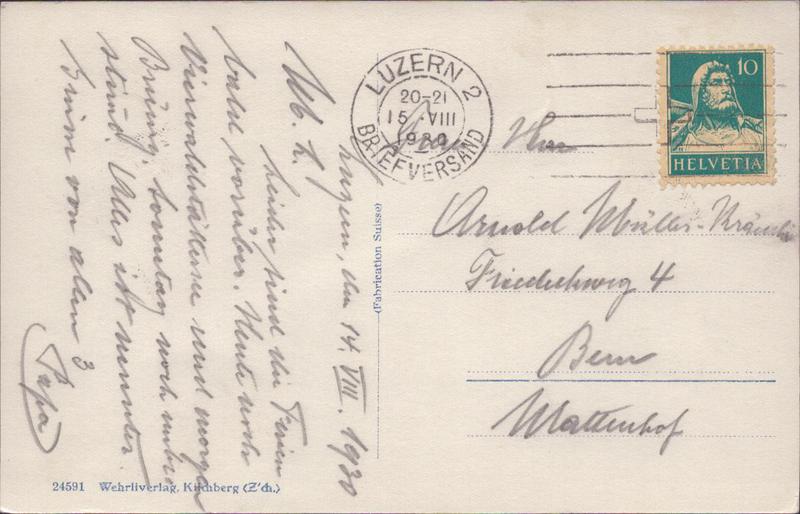 den 14. VIII. 1930
Leider sind die Ferien
bald vorüber. Heute noch
Vierwaldstättersee und morgen
Brünig. Sonntag noch
Alles ist munter.
von allen 3
Papa
24591 Wehrliverlag, Kilchberg (Z'ch.)
(Fabrication Suisse)
LUZERN 2
20-21
15.VIII
1930
BRIEFVERSAND
10
HELVETIA
Arnold Müller-
Friedeckweg 4
Bern
Mattenhof